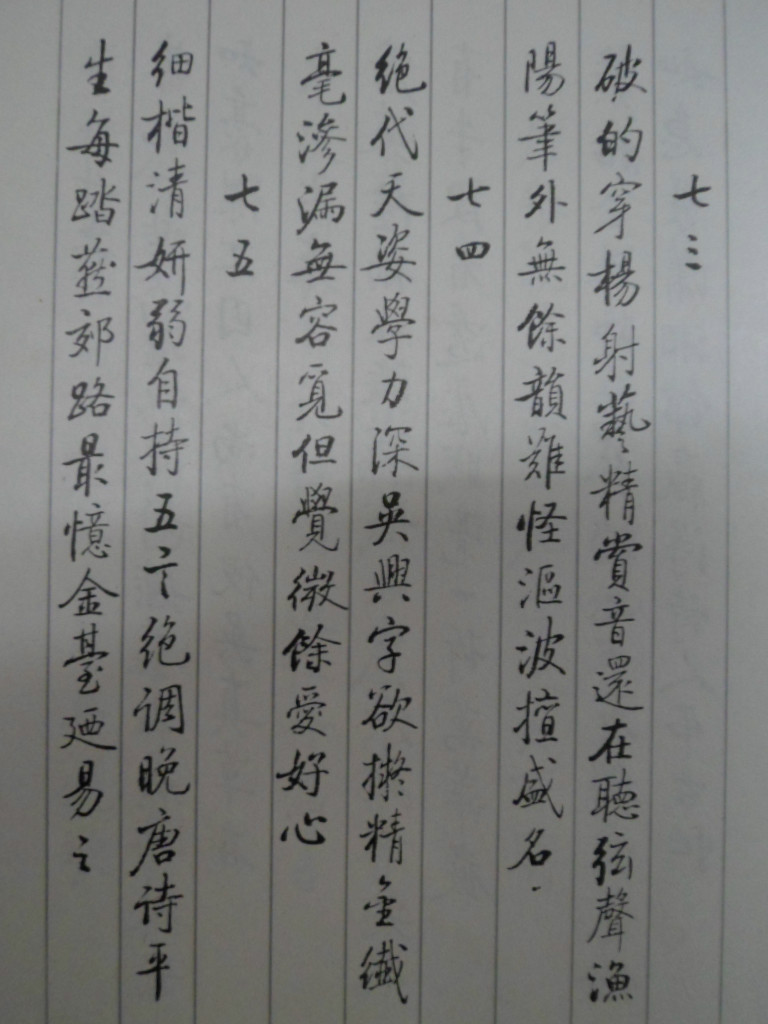 七三
破的穿楊射藝精賞音還在聽弦聲漁
陽筆外無餘韻難怪漚波擅盛名.
七四
絕代天姿學力深吳興字欲擬精金纖
毫滲漏無容覓但覺微餘愛好心
七五
細楷清妍弱自持五言絕調晚唐詩平
生每踏燕郊路最憶金臺廼易之